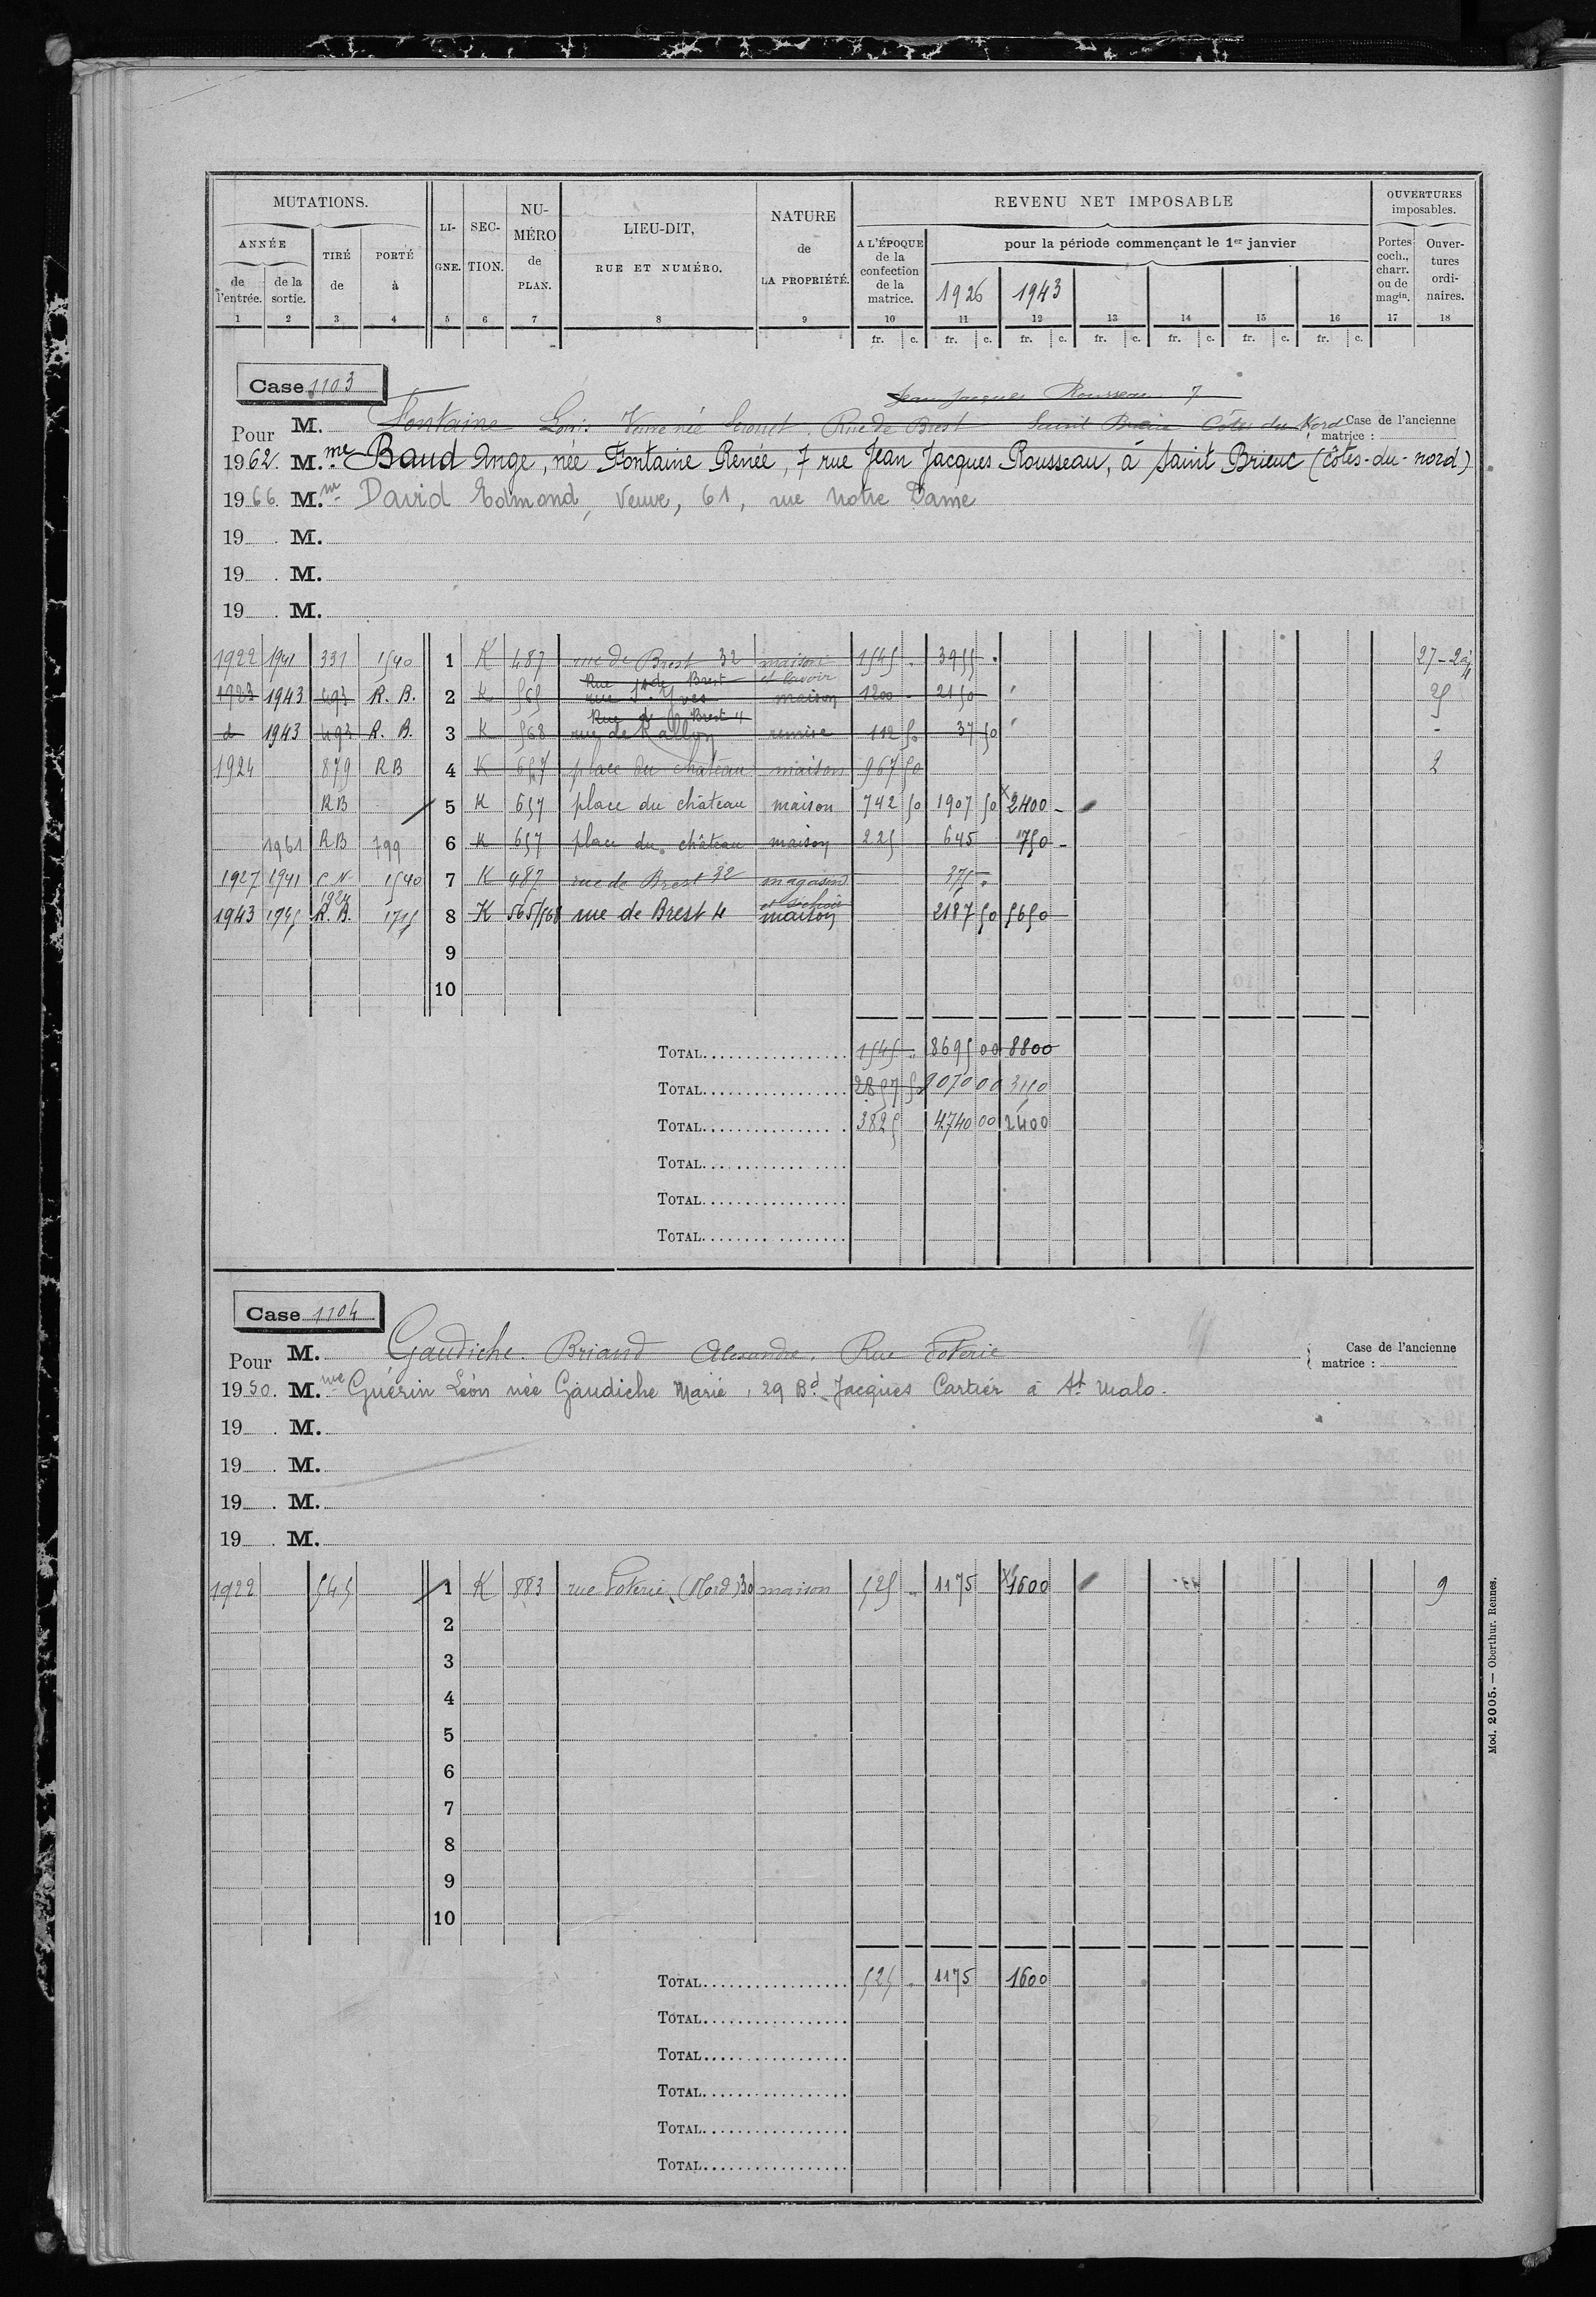 MUTATIONS. LI- SEC- NU- LIEU-DIT, NATURE REVENU NET IMPOSABLE OUVERTURES
GNE. TION. MÉRO RUE ET NUMÉRO. de imposables.
ANNÉE TIRÉ PORTÉ de LA PROPRIÉTÉ. A L'ÉPOQUE pour la période commençant le 1er janvier Portes Ouver-
de de la de à PLAN. de la coch., tures
l'entrée. sortie. confection charr. ordi-
de la 1926 1943 ou de naires.
matrice. magin.
1 2 3 4 5 6 7 8 9 10 11 12 13 14 15 16 17 18
fr. c. fr. c. fr. c. fr. c. fr. c. fr. c. fr. c.
Case 1103
Jean Jacques Rousseau 7
Pour M. Fontaine Louis Veuve née Rue de Brest Saint Brieuc Côtes du Nord Case de l'ancienne
matrice :
1962. M.me Baud Ange, née Fontaine Renée, 7 rue Jean Jacques Rousseau, à Saint Brieuc (Côtes-du-nord)
1966. M.me David Edmond, Veuve, 61, rue Notre Dame
19 . M.
19 . M.
19 . M.
1922 1941 331 1540 1 K 487 rue de Brest 32 maison et lavoir 1545 . 3955 . 27-2
Rue de Brest
1923 1943 493 R. B. 2 K 565 rue St Yves maison 1200 - 2150 " 25
Rue de Brest 4
d 1943 493 R. B. 3 K 568 rue de remise 112 50 37 50 " -
1924 879 RB 4 K 657 place du château maison 967 50 2
RB 5 K 657 place du château maison 742 50 1907 50 x2400 -
1961 RB 799 6 K 657 place du château maison 225 645 750 -
1927 1941 C N 1927 1540 7 K 487 rue de Brest 32 magasin 375 .
1943 1945 R. B. 1715 8 K 565/568 rue de Brest 4 maison 2187 50 5650
9
10
Total 1545 .. 8695 00 8800
Total 2857 50 9070 00 3150
Total 3825 4740 00 2400
Total
Total
Total
Case 1104
Pour M. Gaudiche Briand Alexandre, Rue Poterie Case de l'ancienne
matrice :
1950. M.me Guérin Léon née Gaudiche Marie, 29 Bd Jacques Cartier à St Malo.
19 . M.
19 . M.
19 . M.
19 . M.
1922 545 1 K 883 rue Poterie (Nord) 30 maison 525 .. 1175 x1600 9
2
3
4
5
6
7
8
9
10
Total 525 . 1175 1600
Total
Total
Total
Total
Total
Mod. 2005. — Oberthur. Rennes.